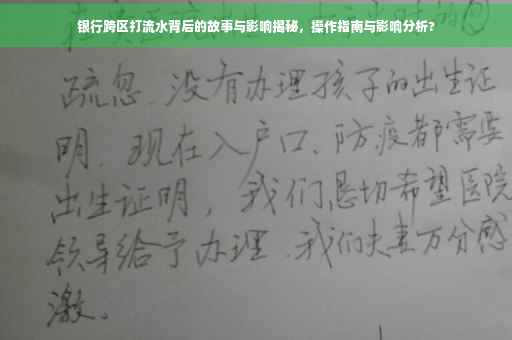 银行跨区打流水背后的故事与影响揭秘，操作指南与影响分析？
疏忽.没有办理孩子的出生证
明.现在入户口、防疫都需要
出生证明，我们恳切希望医院
领导给予办理.我们夫妻万分感
激。